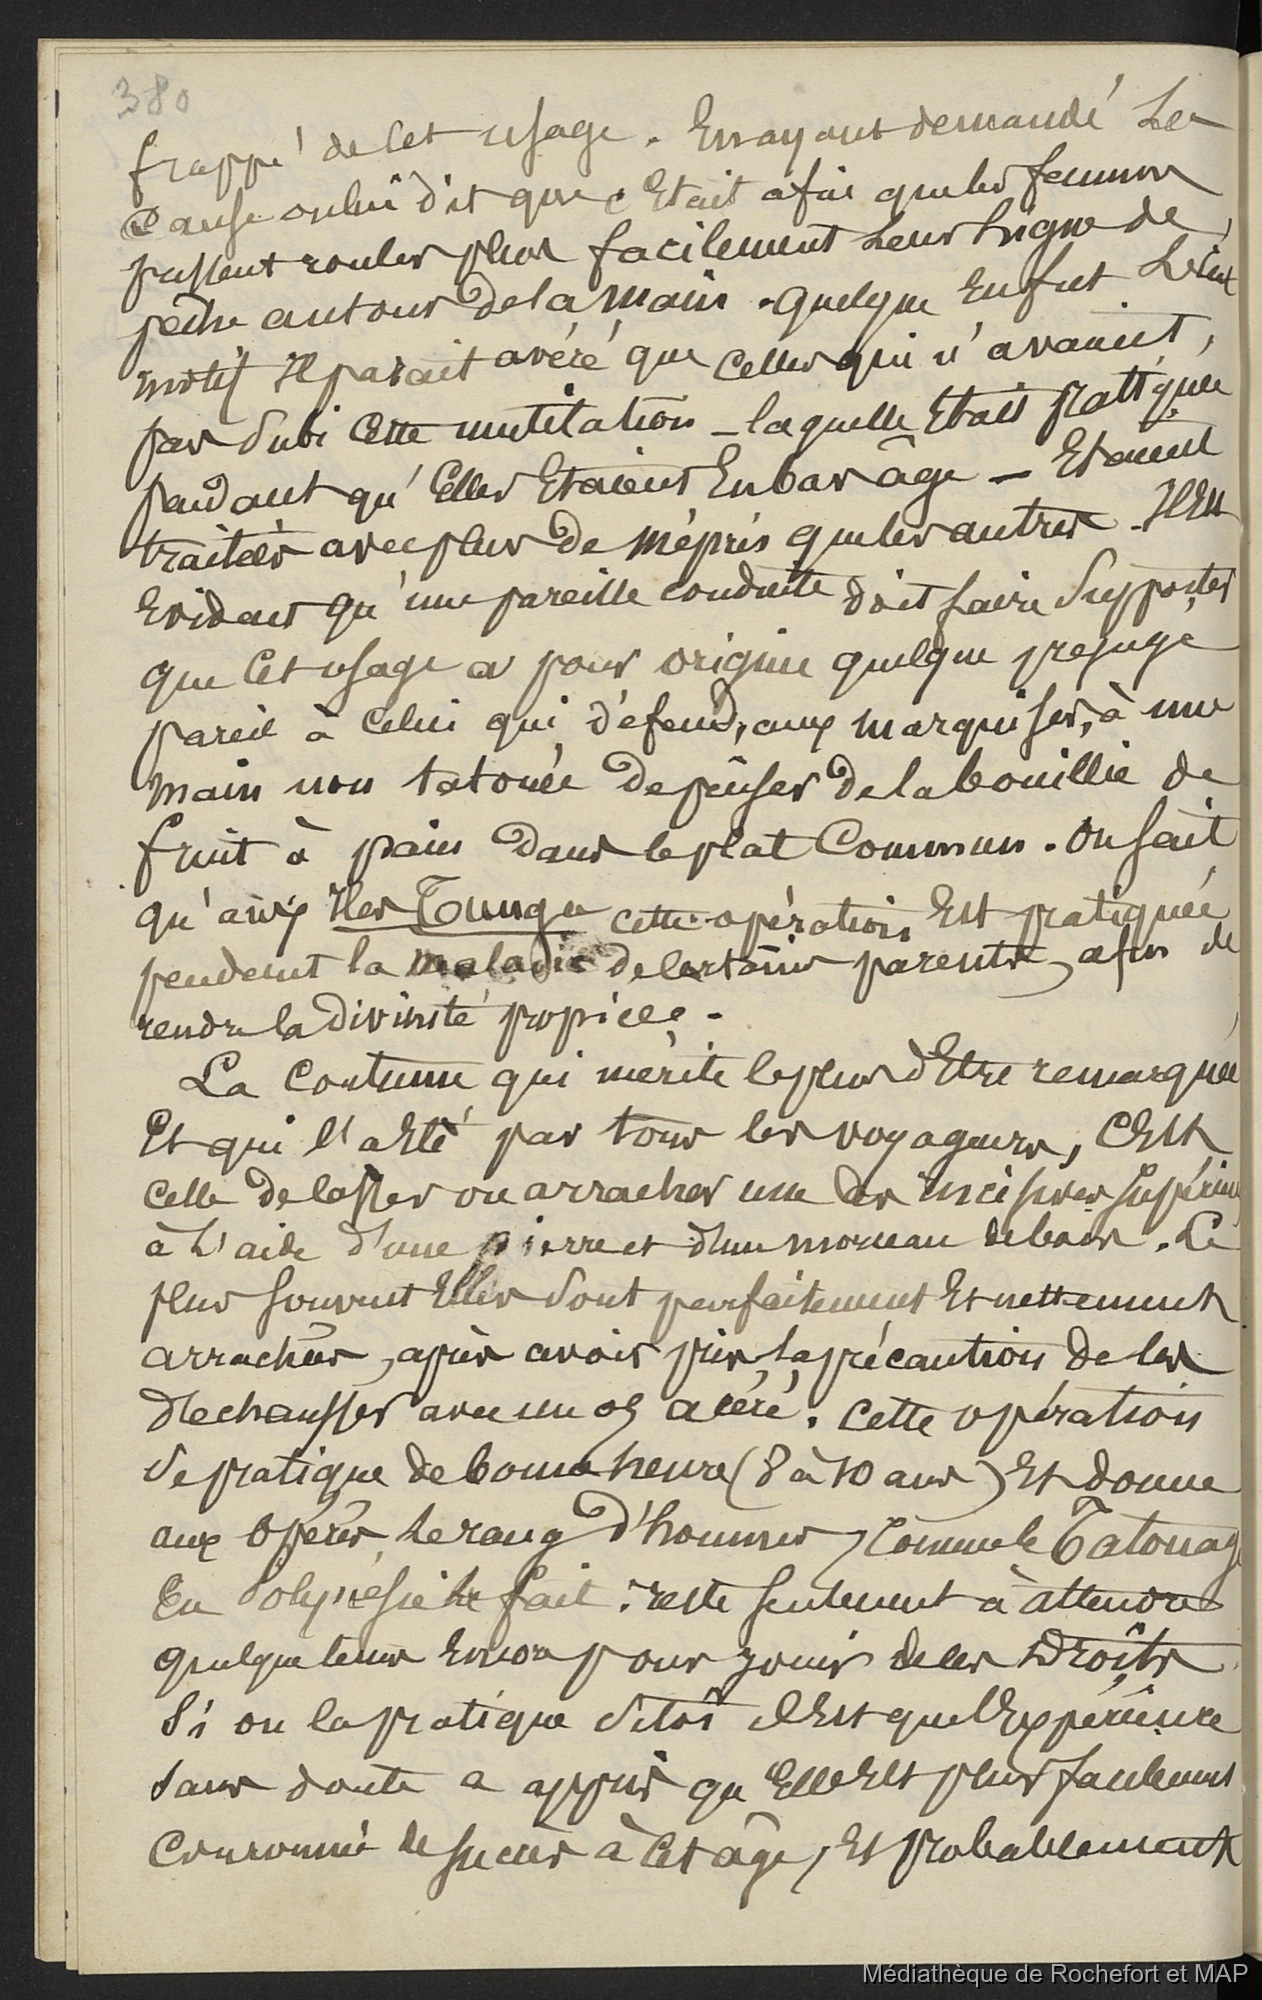 380
frappé de cet usage. En ayant demandé la
cause on lui dit que c'était afin que les femmes
pussent rouler plus facilement leur ligne de
pêche autour de la main. Quelque en fut
motif il parait avéré que celles qui n'avaient,
pas subi cette mutilation _ laquelle était pratiquée
pendant qu'elles étaient en bas âge _ étaient
traitées avec plus de mépris que les autres. Il est
Evidant qu'une pareille conduite doit faire supposer
que cet usage a pour origine quelque préjugé
pareil à celui qui défend, aux marquises, à une
main non tatouée de puiser de la bouillie de
fruit à pain dans le plat commun. On sait
qu'aux Iles Tounga cette opération est pratiquée
pendant la maladie de certains parents, afin de
rendre la divinité propice.
La coutume qui mérite le plus d'être remarquée
Et qui l'a été par tous les voyageurs, c'est
celle de casser ou arracher une des incisives supérieures
à l'aide d'une pierre et d'un morceau de bois. Le
plus souvent Elles sont parfaitement et nettement
arrachées, après avoir pris la précaution de les
déchausser avec un os acéré. Cette opération
se pratique de bonne heure (8 à 10 ans) Et donne
aux opérés le rang d'hommes, comme le Tatouage
En Polynésie le fait. reste seulement à attendre
quelque tems encore pour jouir de ces Droits
Si on la pratique si tôt c'Est que l'Expérience
sans doute a appris qu'Elle Est plus facilement
couronnée de succès à cet âge, Et probablement
Médiathèque de Rochefort et MAP